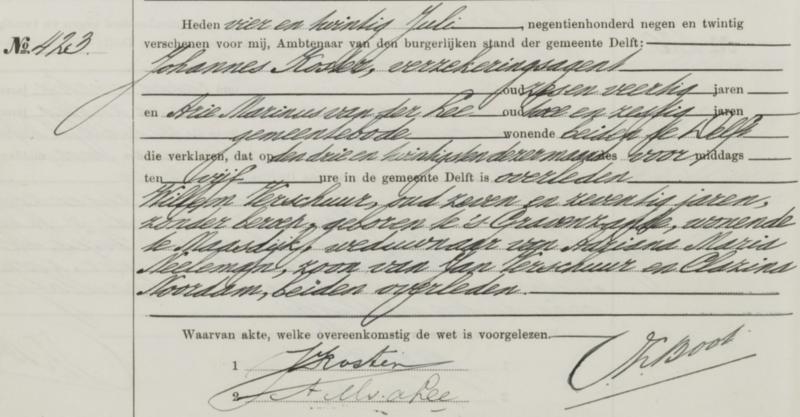 Heden vier en twintig Juli, negentienhonderd negen en twintig
No. 423. verschenen voor mij, Ambtenaar van den burgerlijken stand der gemeente Delft:
Johannes Koster, verzekeringsagent
oud zegen veertig jaren
en Arie Marinus van der Lee oud twee en zestig jaren
gemeentebode wonende beiden te Delft
die verklaren, dat op den drie en twintigsten dezer maands voor middags
ten vijf ure in de gemeente Delft is overleden
Willem Verschuur, oud zeven en zeventig jaren,
zonder beroep, geboren te 's Gravenzande, wonende
te Maasdijk, weduwnaar van Adriana Maria
Neeleman, zoon van Jan Verschuur en Clazina
Noordam, beiden overleden.
Waarvan akte, welke overeenkomstig de wet is voorgelezen.
1 J Koster
2 A M v. d Lee
Boot